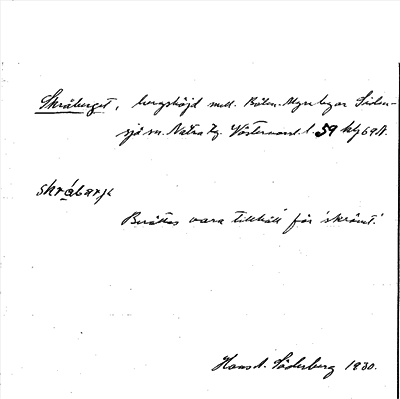 Skråberget, bergshöjd mell. Bölen-Myre byar Siden-
sjö sn. Nätra tg. Västernorrl. l. 59 kbl 69 A.
skråbarʒe
Berättas vara tillhåll för 'skrömt'.
Hans A. Söderberg 1930.